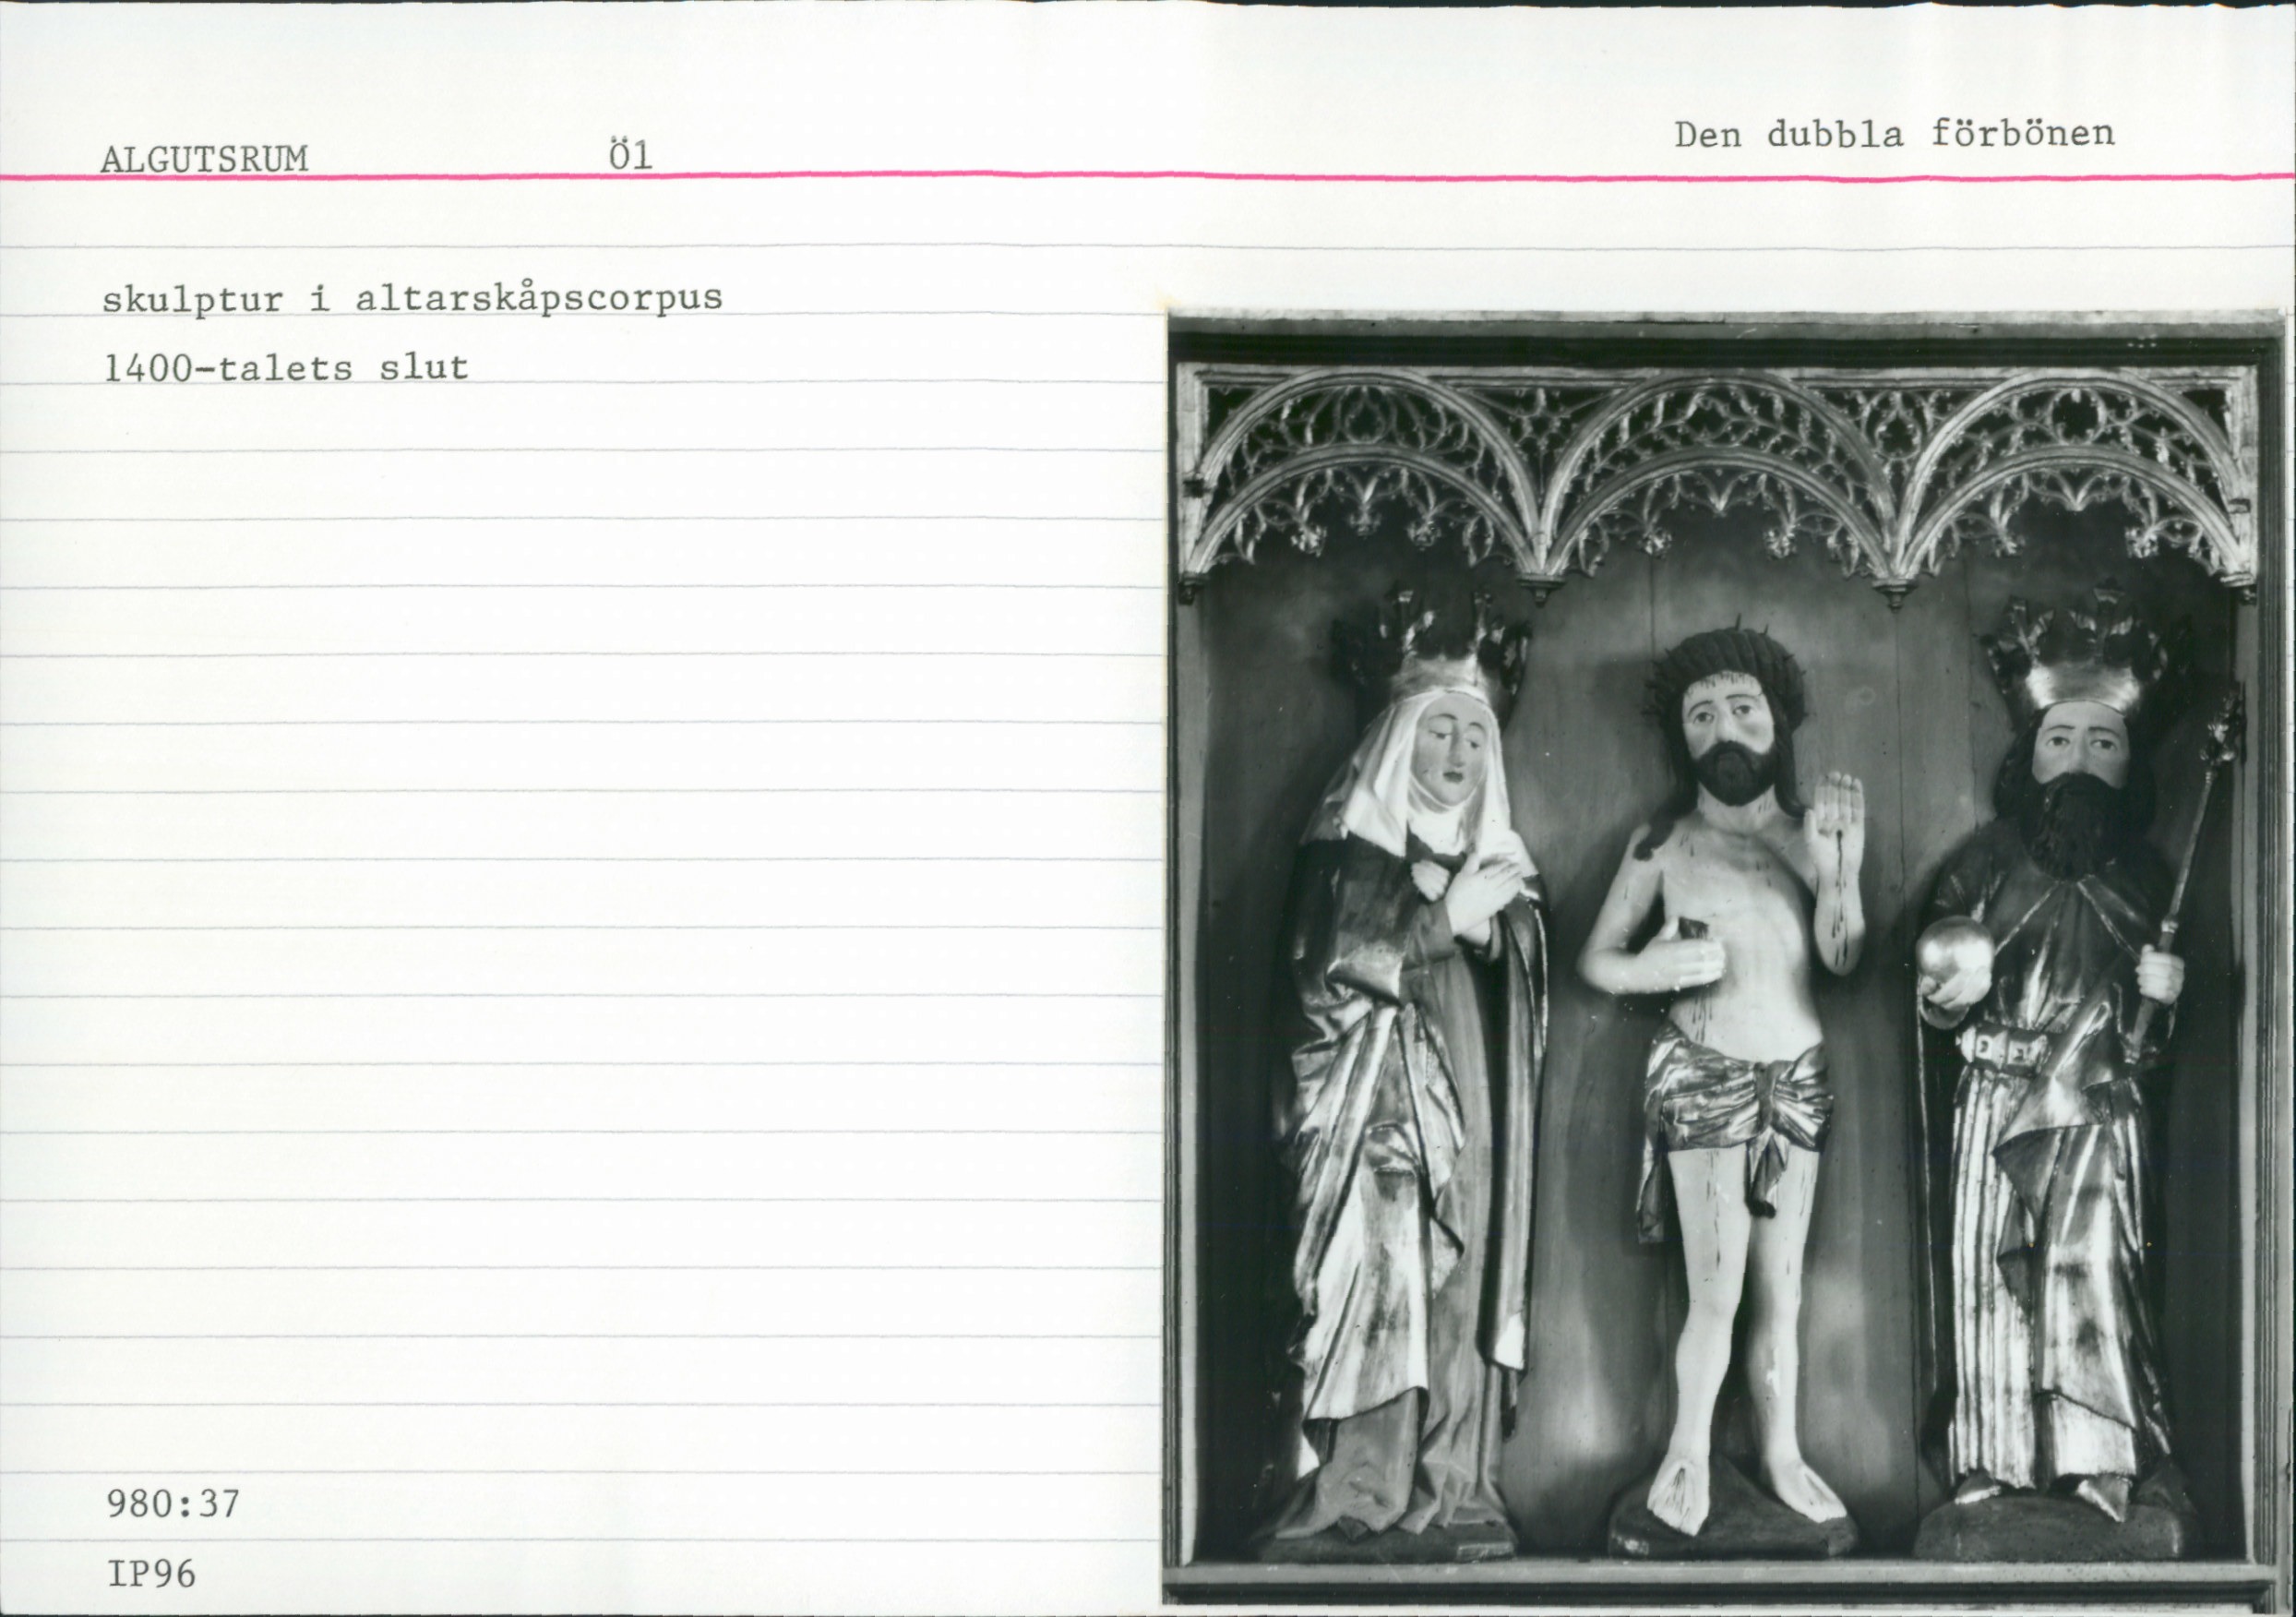 ALGUTSRUM Ö1 Den dubbla förbönen
skulptur i altarskåpscorpus
1400-talets slut
980:37
IP96